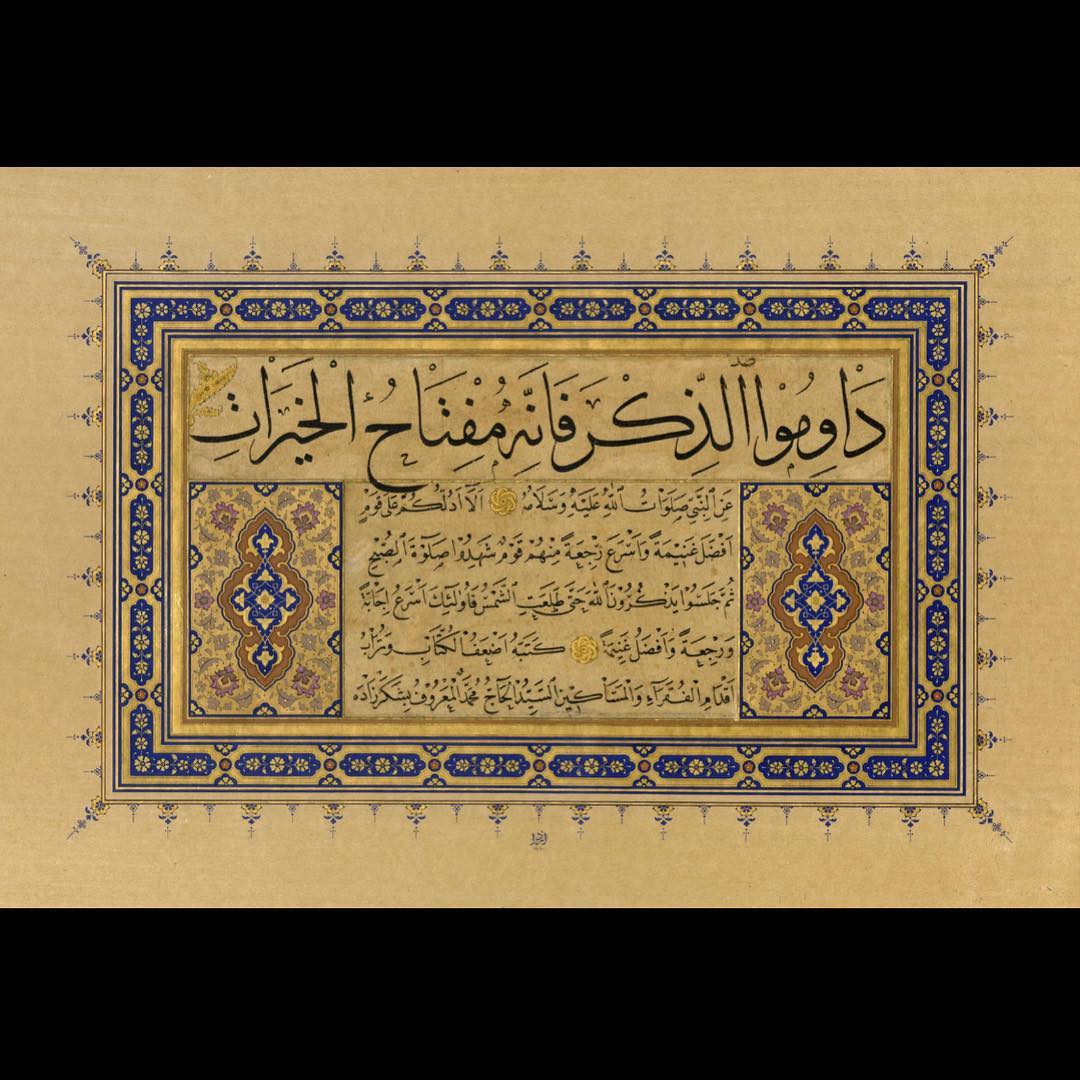 دَاوِمُوا الذِّكْرَ فَاِنَّهُ مُفْتَاحُ الْخَيْرَاتِ
عَنِ النَّبِيِّ صَلَوَاتُ اللهِ عَلَيْهِ وَسَلَامُهُ اَلَا اَدُلُّكُمْ عَلَى قَوْمٍ
اَفْضَلَ غَنِيمَةً وَاَسْرَعَ رَجْعَةً مِنْهُمْ قَوْمٌ شَهِدُوا صَلٰوةَ الصُّبْحِ
ثُمَّ جَلَسُوا يَذْكُرُونَ اللهَ حَتَّى طَلَعَتِ الشَّمْسُ فَاُولٰئِكَ اَسْرَعُ
وَرَجْعَةً وَاَفْضَلُ غَنِيمَةً كَتَبَهُ اَضْعَفُ الْكُتَّابِ وَتُرَابُ
اَقْدَامِ الْفُقَرَاءِ وَالْمَسَاكِينِ السَّيِّدُ الْحَاجُّ مُحَمَّدُ الْمَعْرُوفُ بِشَكَرْزَادَه